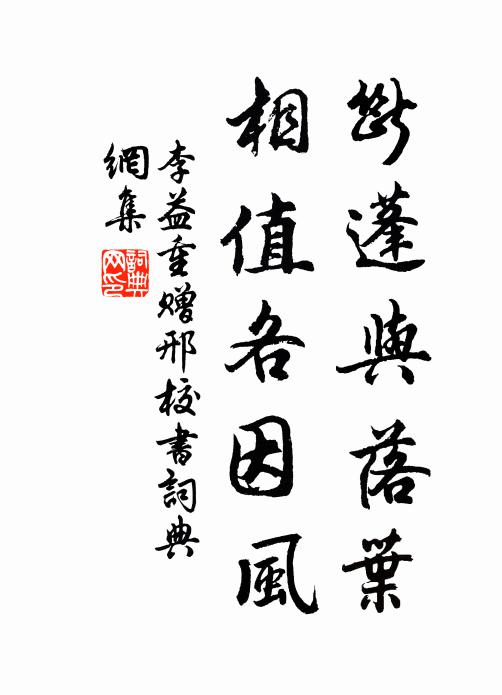 斷蓬與落葉
相值各因風
李益重贈邢校書詞典
網集
詞典
网印